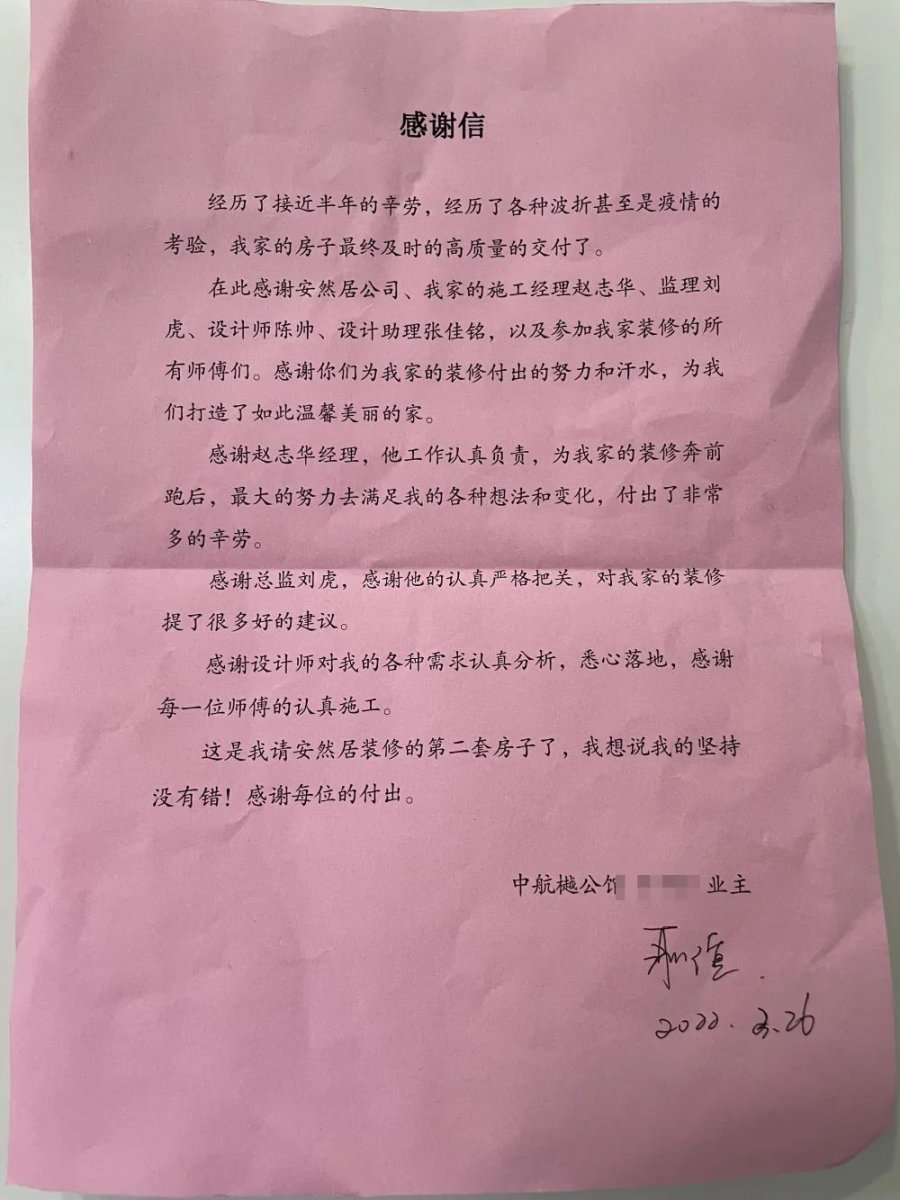 感谢信
经历了接近半年的辛劳，经历了各种波折甚至是疫情的
考验，我家的房子最终及时的高质量的交付了。
在此感谢安然居公司、我家的施工经理赵志华、监理刘
虎、设计师陈帅、设计助理张佳铭，以及参加我家装修的所
有师傅们。感谢你们为我家的装修付出的努力和汗水，为我
们打造了如此温馨美丽的家。
感谢赵志华经理，他工作认真负责，为我家的装修奔前
跑后，最大的努力去满足我的各种想法和变化，付出了非常
多的辛劳。
感谢总监刘虎，感谢他的认真严格把关，对我家的装修
提了很多好的建议。
感谢设计师对我的各种需求认真分析，悉心落地，感谢
每一位师傅的认真施工。
这是我请安然居装修的第二套房子了，我想说我的坚持
没有错！感谢每位的付出。
中航樾公馆 业主
2022.2.26